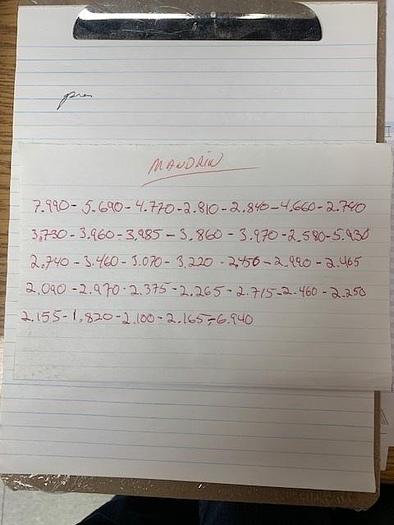 MANDRIN
7.990 - 5.690 - 4.770 - 2.810 - 2.840 - 4.660 - 2.740
3,730 - 3.960 - 3.985 - 3.860 - 3.970 - 2.580 - 5.930
2.740 - 3.460 - 3.070 - 3.220 - 2,450 - 2.990 - 2.465
2.090 - 2.970 - 2.375 - 2.265 - 2.715 - 2.460 - 2.250
2.155 - 1.820 - 2.100 - 2.165 - 6.940